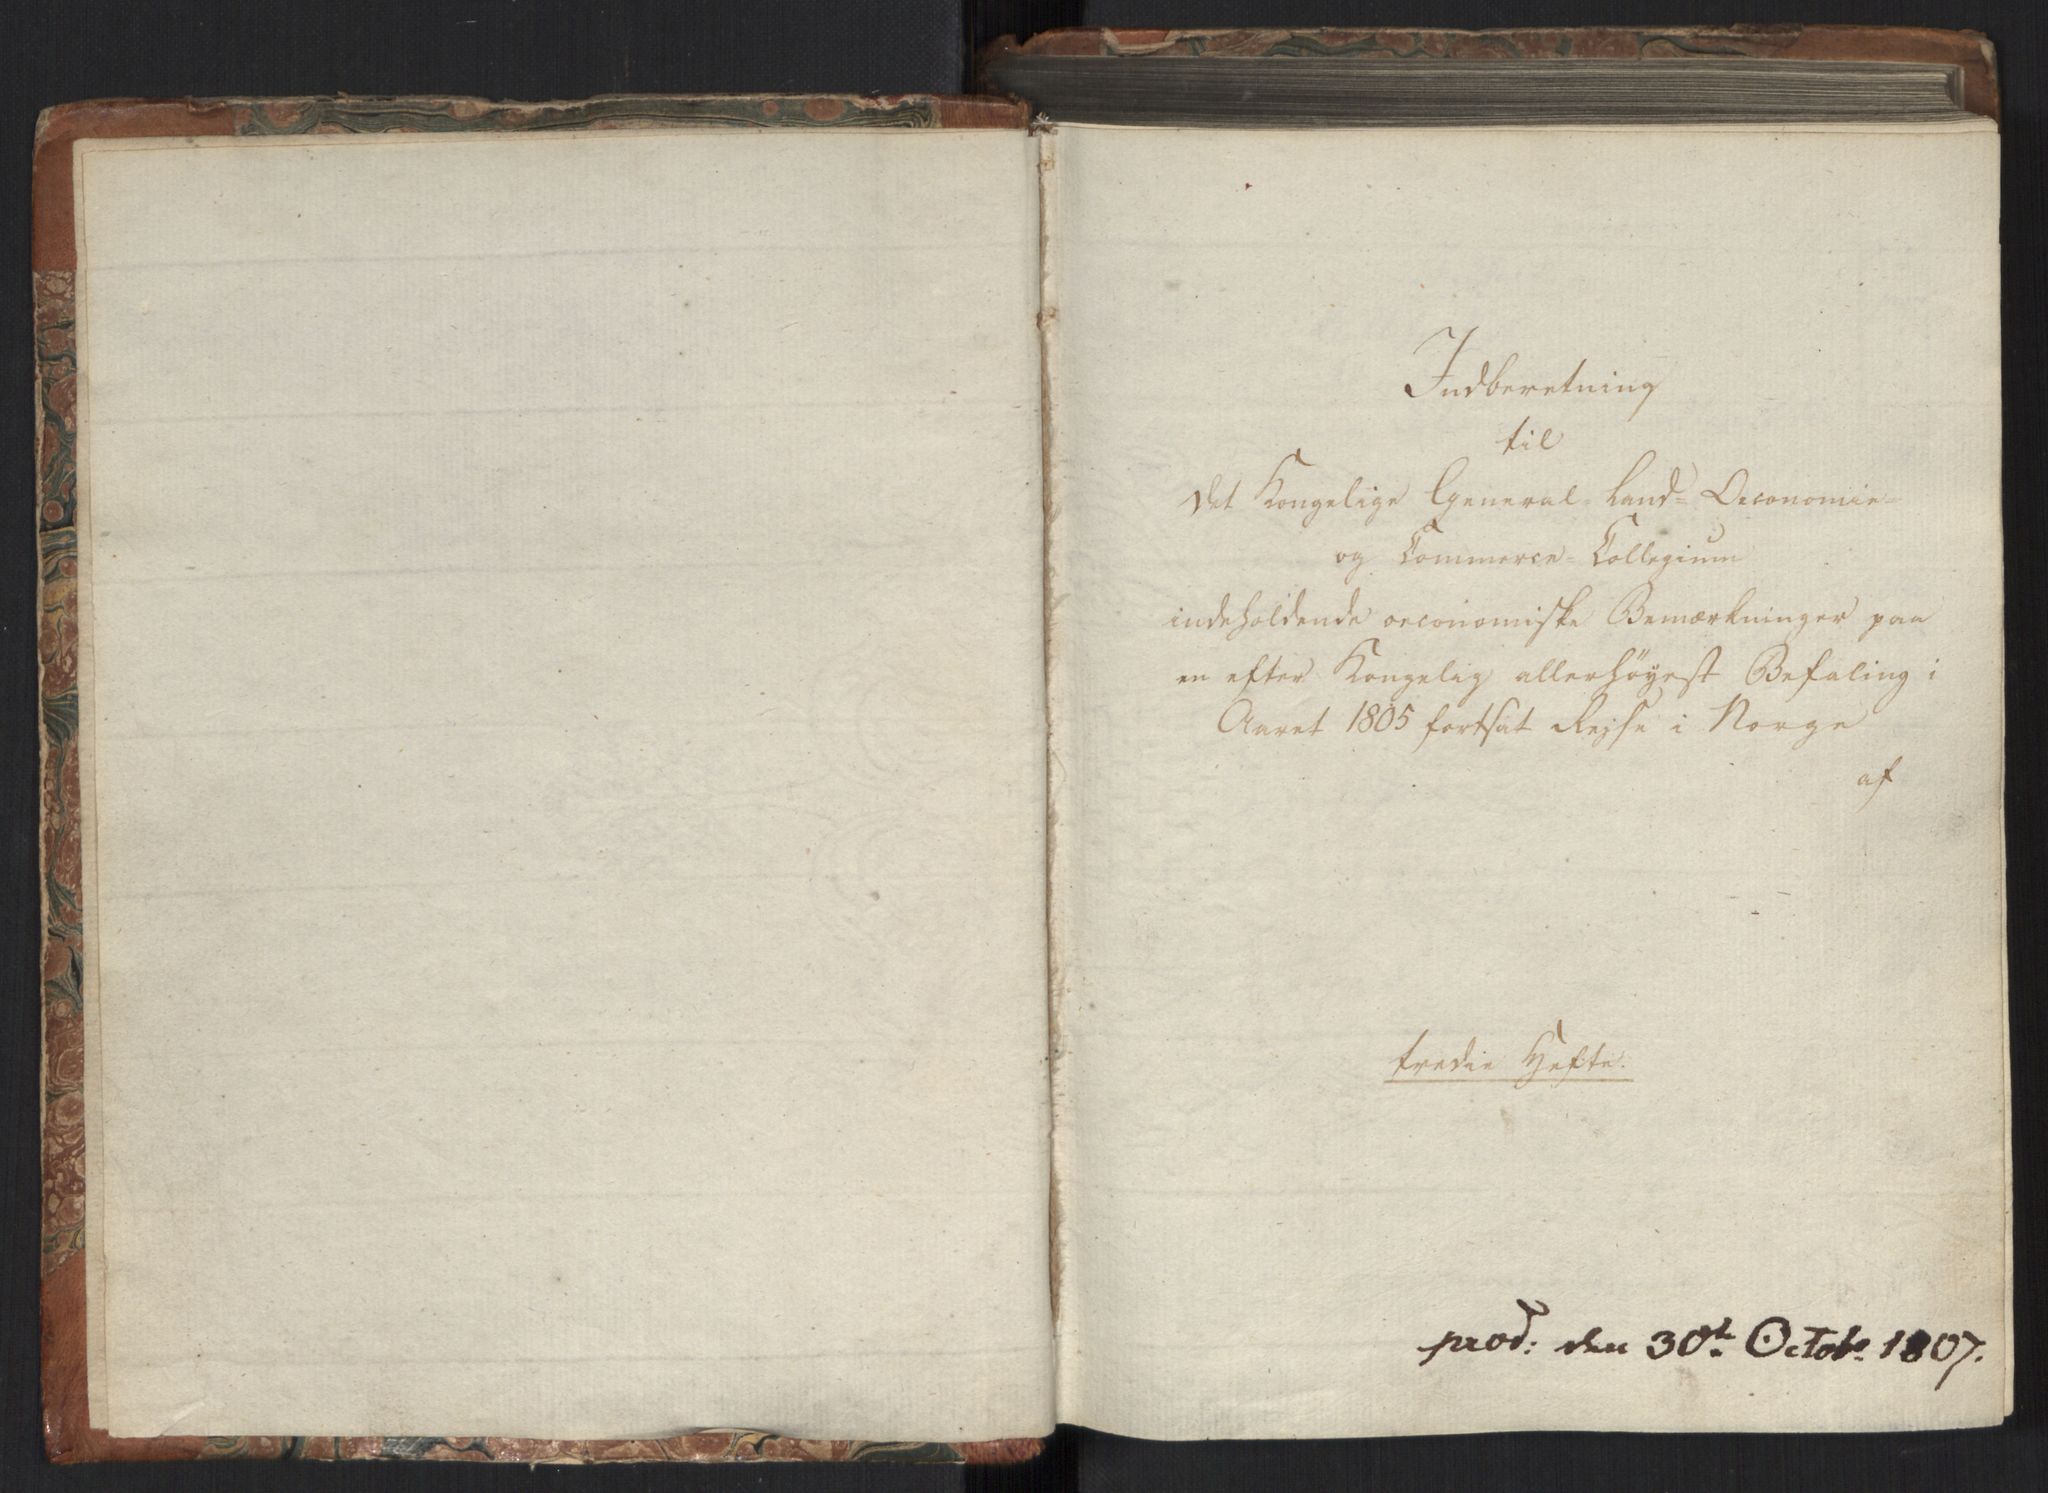 Indberetning
til
det Kongelige General-Land-Oeconomie-
og Commerce-Collegium
indeholdende oeconomiske Bemærkninger paa
en efter Kongelig allerhöyest Befaling i
Aaret 1805 fortsat Rejse i Norge
af
tredie Hefte.
prod: den 30t. Octobr. 1807.